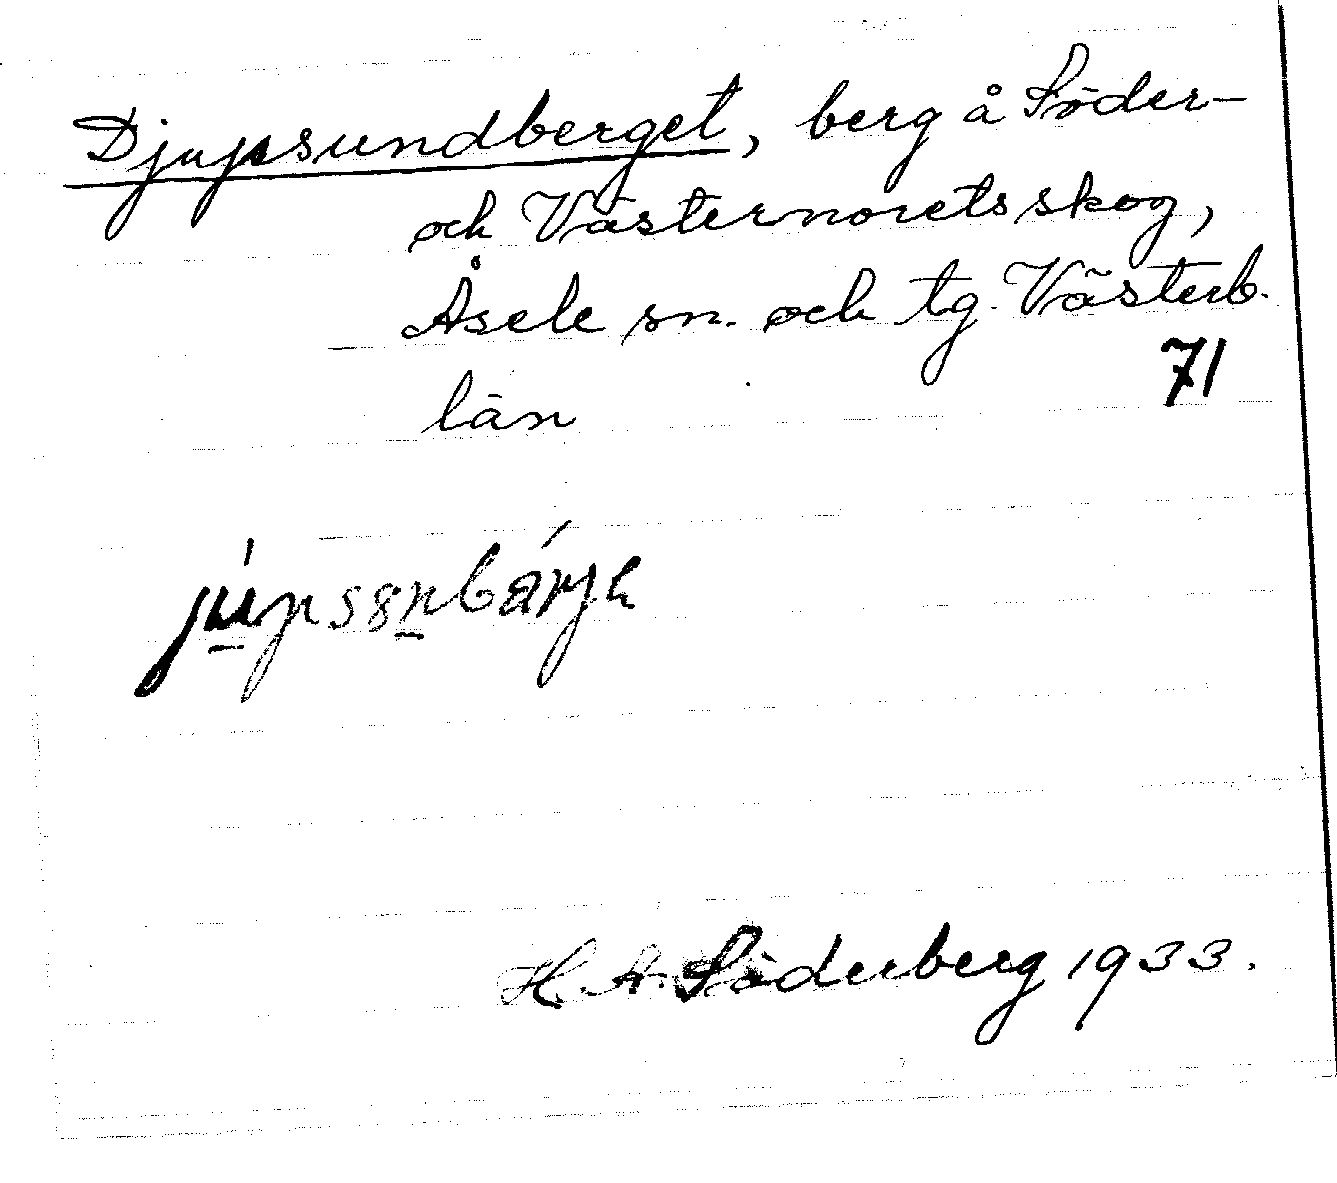 Djupsundberget, berg å Söder-
och Västernorets skog,
Åsele sn. och tg. Västerb.
län
71
H. A. Söderberg 1933.